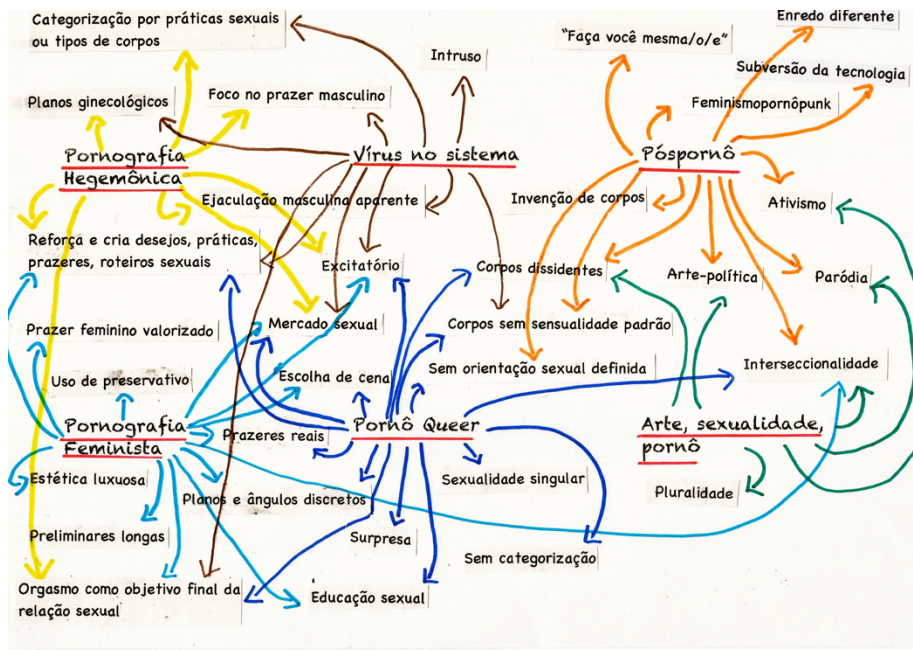 Categorização por práticas sexuais
ou tipos de corpos
Intruso
"Faça você mesma/o/e"
Enredo diferente
Subversão da tecnologia
Planos ginecológicos
Foco no prazer masculino
Feminismopornôpunk
Pornografia
Hegemônica
Vírus no sistema
Póspornô
Ejaculação masculina aparente
Invenção de corpos
Ativismo
Reforça e cria desejos, práticas,
prazeres, roteiros sexuais
Excitatório
Corpos dissidentes
Arte-política
Paródia
Prazer feminino valorizado
Mercado sexual
Corpos sem sensualidade padrão
Uso de preservativo
Escolha de cena
Sem orientação sexual definida
Interseccionalidade
Pornografia
Feminista
Prazeres reais
Pornô Queer
Arte, sexualidade,
pornô
Estética luxuosa
Planos e ângulos discretos
Sexualidade singular
Pluralidade
Preliminares longas
Surpresa
Sem categorização
Orgasmo como objetivo final da
relação sexual
Educação sexual